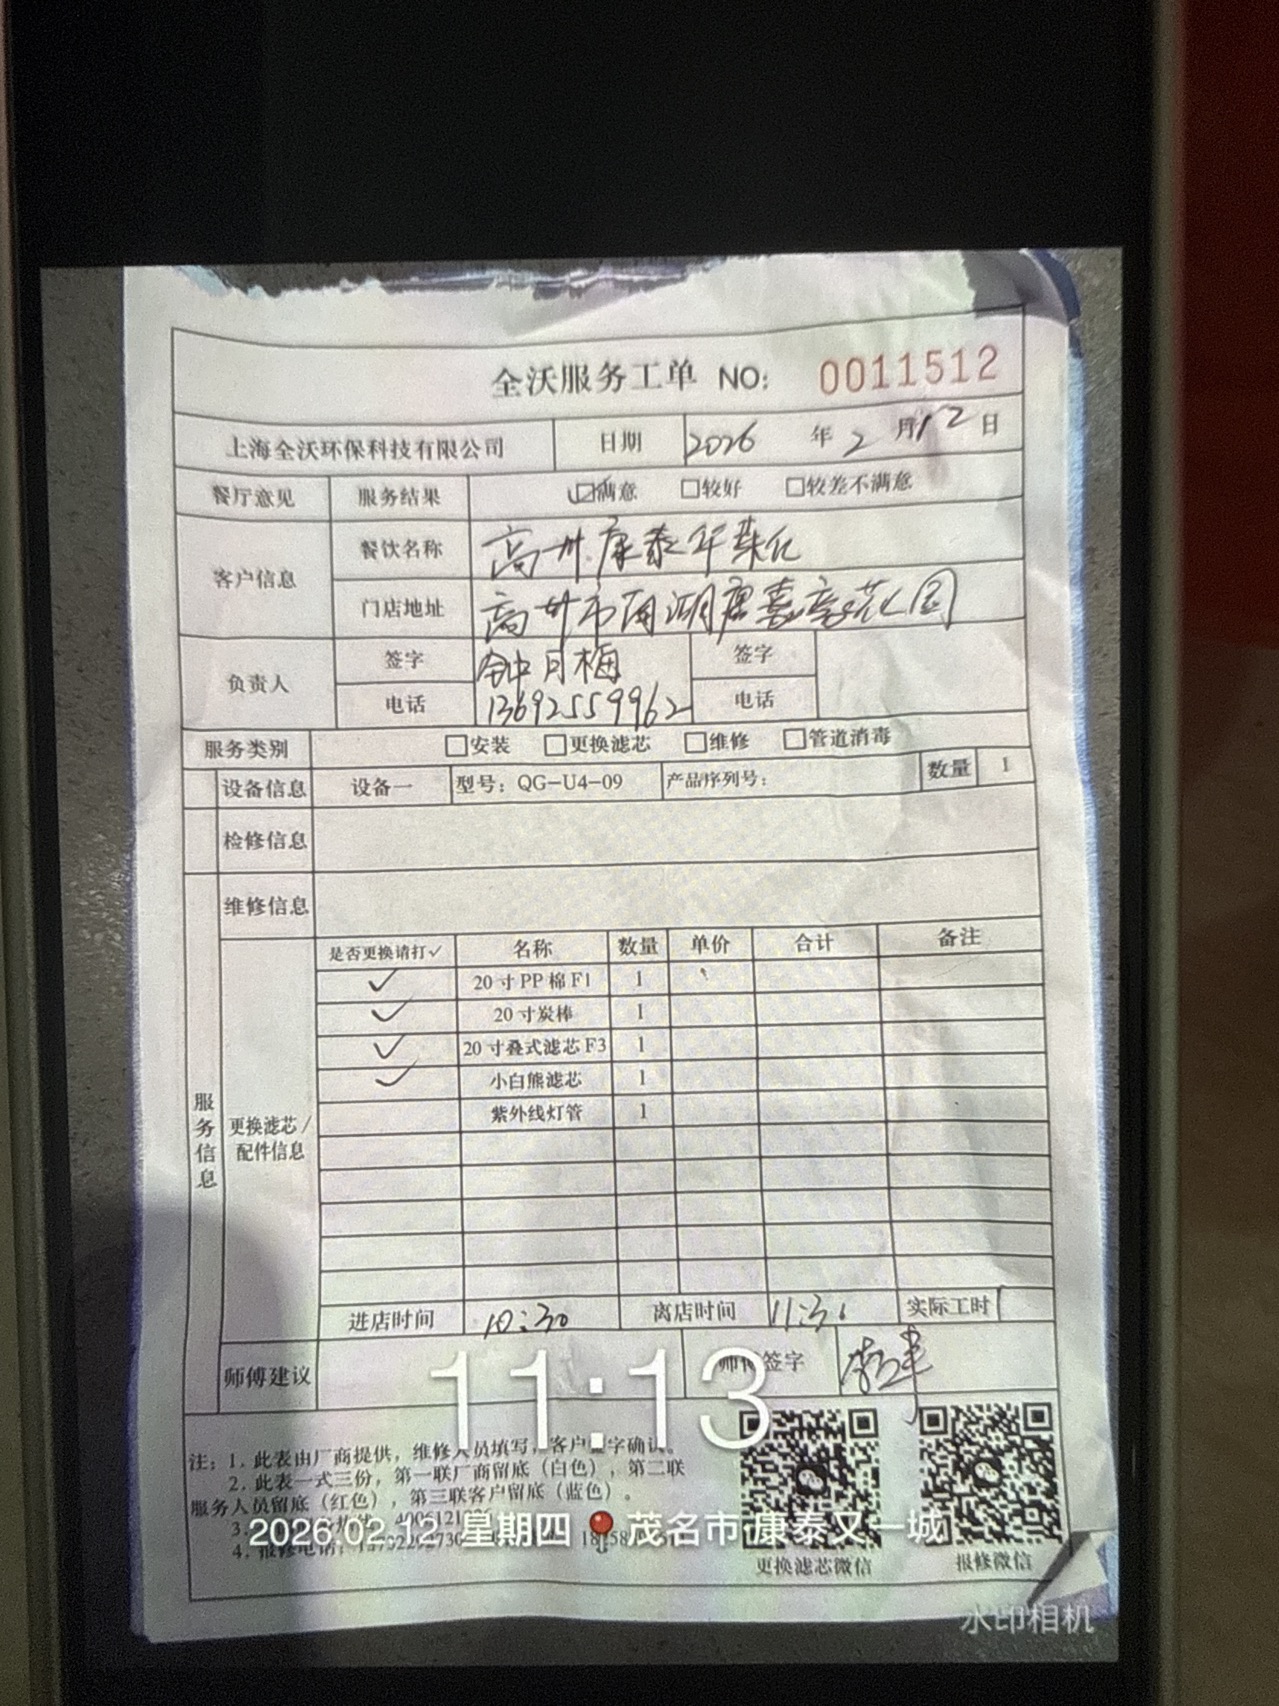 全沃服务工单 NO: 0011512
上海全沃环保科技有限公司 日期 2026 年 2 月 12 日
餐厅意见 服务结果 满意 较好 较差不满意
客户信息 餐饮名称 高州康泰华莱仕
门店地址 高州市南湖康嘉豪花园
负责人 签字 钟月梅 签字
电话 13692559962 电话
服务类别 安装 更换滤芯 维修 管道消毒
设备信息 设备一 型号：QG-U4-09 产品序列号： 数量 1
检修信息
维修信息
服务信息
更换滤芯/配件信息
是否更换请打✓ 名称 数量 单价 合计 备注
✓ 20寸PP棉F1 1
✓ 20寸炭棒 1
✓ 20寸叠式滤芯F3 1
✓ 小白熊滤芯 1
紫外线灯管 1
进店时间 10:30 离店时间 11:31 实际工时 1
师傅建议 师傅签字
11:13
注：1. 此表由厂商提供，维修人员填写，客户签字确认。
2. 此表一式三份，第一联厂商留底（白色），第二联
服务人员留底（红色），第三联客户留底（蓝色）。
3.
4. 报修电话：
2026.02.12 星期四 茂名市·康泰又一城
更换滤芯微信 报修微信
水印相机